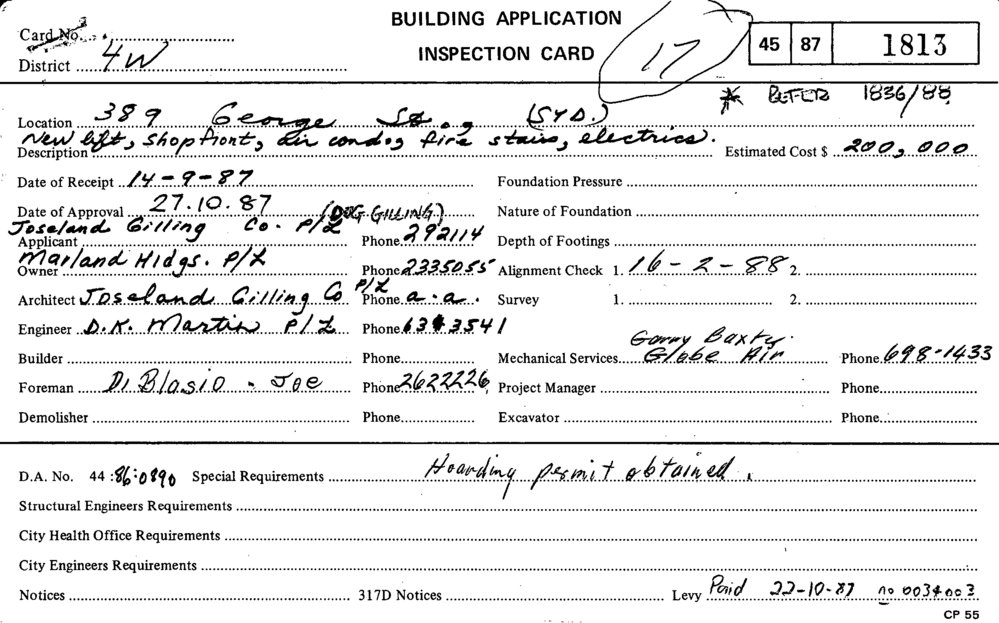 BUILDING APPLICATION
INSPECTION CARD
Card No.
District 4W
17
45 87 1813
* REFER 1836/88
Location 389 George St., (SYD.)
Description New lift, shopfront, air condng fire stairs, electrics. Estimated Cost $ 200,000
Date of Receipt 14-9-87 Foundation Pressure
Date of Approval 27.10.87 Nature of Foundation
(DOG GILLING)
Applicant Joseland Gilling Co. P/L Phone 292114 Depth of Footings
Owner Marland Hldgs. P/L Phone 2335055 Alignment Check 1. 16-2-88 2.
Architect Joseland Gilling Co P/L Phone a.a. Survey 1. 2.
Engineer D.K. Martin P/L Phone 63 3541
Builder Phone Mechanical Services Garry Baxty. Globe Air Phone 698-1433
Foreman Di Blasio - Joe Phone 2622226 Project Manager Phone
Demolisher Phone Excavator Phone
D.A. No. 44:86:0890 Special Requirements Hoarding permit obtained.
Structural Engineers Requirements
City Health Office Requirements
City Engineers Requirements
Notices 317D Notices Levy Paid 22-10-87 no 0034003
CP 55